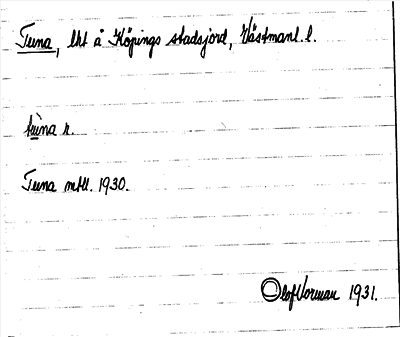 Tuna, lht å Köpings stadsjord, Västmanl. l.
tùna r.
Tuna mtll. 1930.
Olof Vorman 1931.